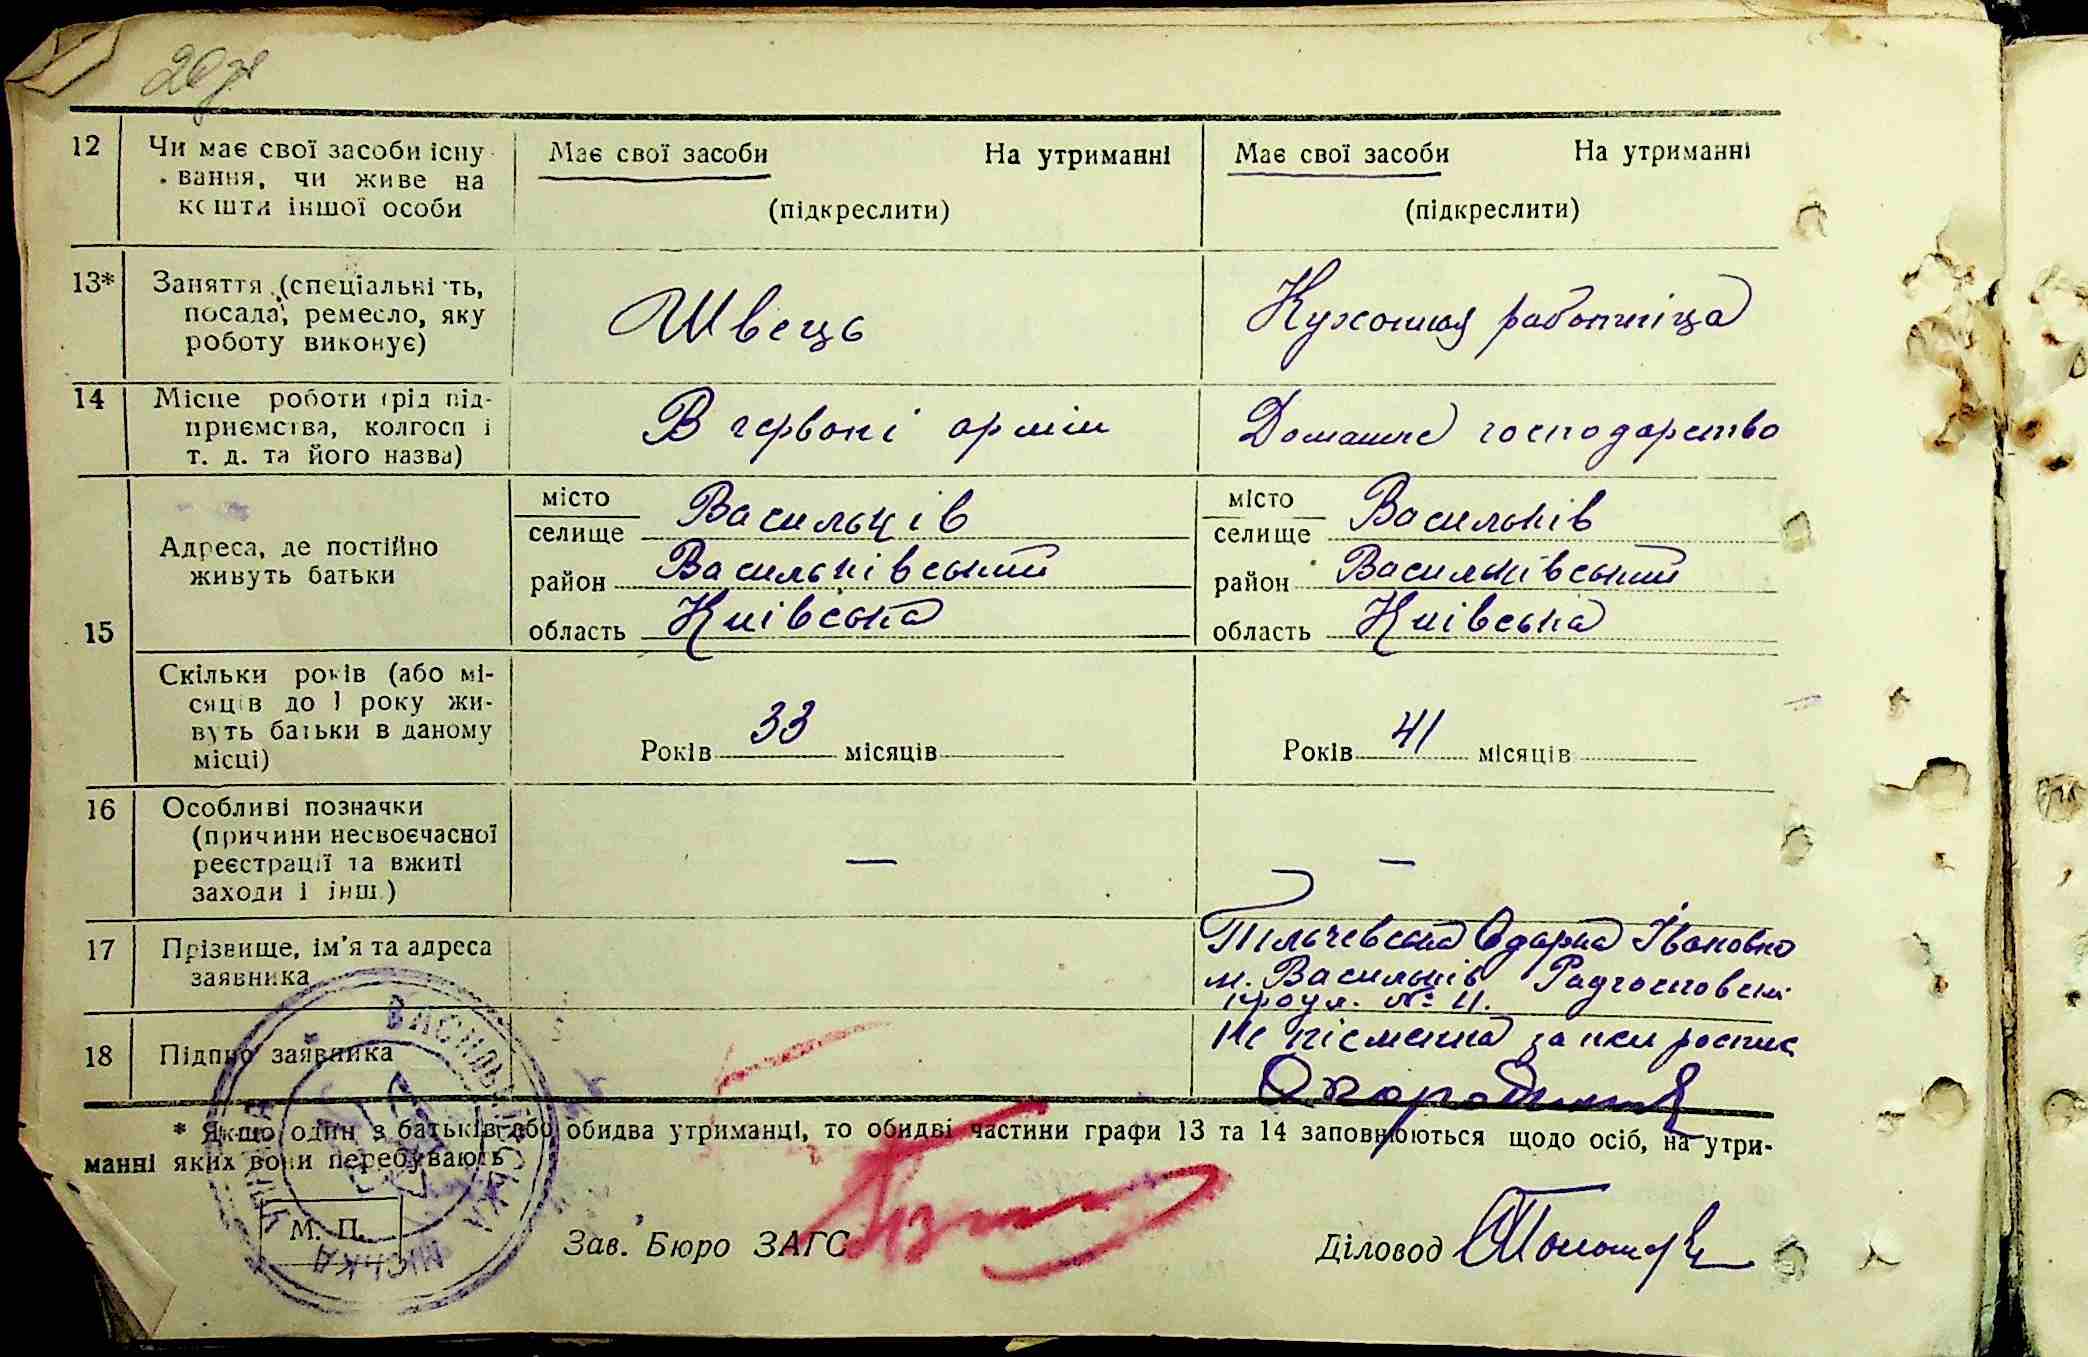 12 Чи має свої засоби існу-
вання, чи живе на
кошти іншої особи
Має свої засоби На утриманні
(підкреслити)
Має свої засоби На утриманні
(підкреслити)
13* Заняття (спеціальність,
посада, ремесло, яку
роботу виконує)
Швець
Кухонная работніца
14 Місце роботи (рід під-
приємства, колгосп і
т. д. та його назва)
В червоні армии
Домашнє господарство
15
Адреса, де постійно
живуть батьки
місто
селище Васильків
район Васильківський
область Київська
місто
селище Васильків
район Васильківський
область Київська
Скільки років (або мі-
сяців до 1 року жи-
вуть батьки в даному
місці)
Років 33 місяців
Років 41 місяців
16 Особливі позначки
(причини несвоєчасної
реєстрації та вжиті
заходи і інш.)
—
—
17 Прізвище, ім'я та адреса
заявника
Тільчевська Одарка Івановна
м. Васильків Радгосповски
проул. № 11.
18 Підпис заявника
Не пісменна за неи роспис
* Якщо один з батьків або обидва утриманці, то обидві частини графи 13 та 14 заповнюються щодо осіб, на утри-
манні яких вони перебувають
М. П.
Зав. Бюро ЗАГС
Діловод